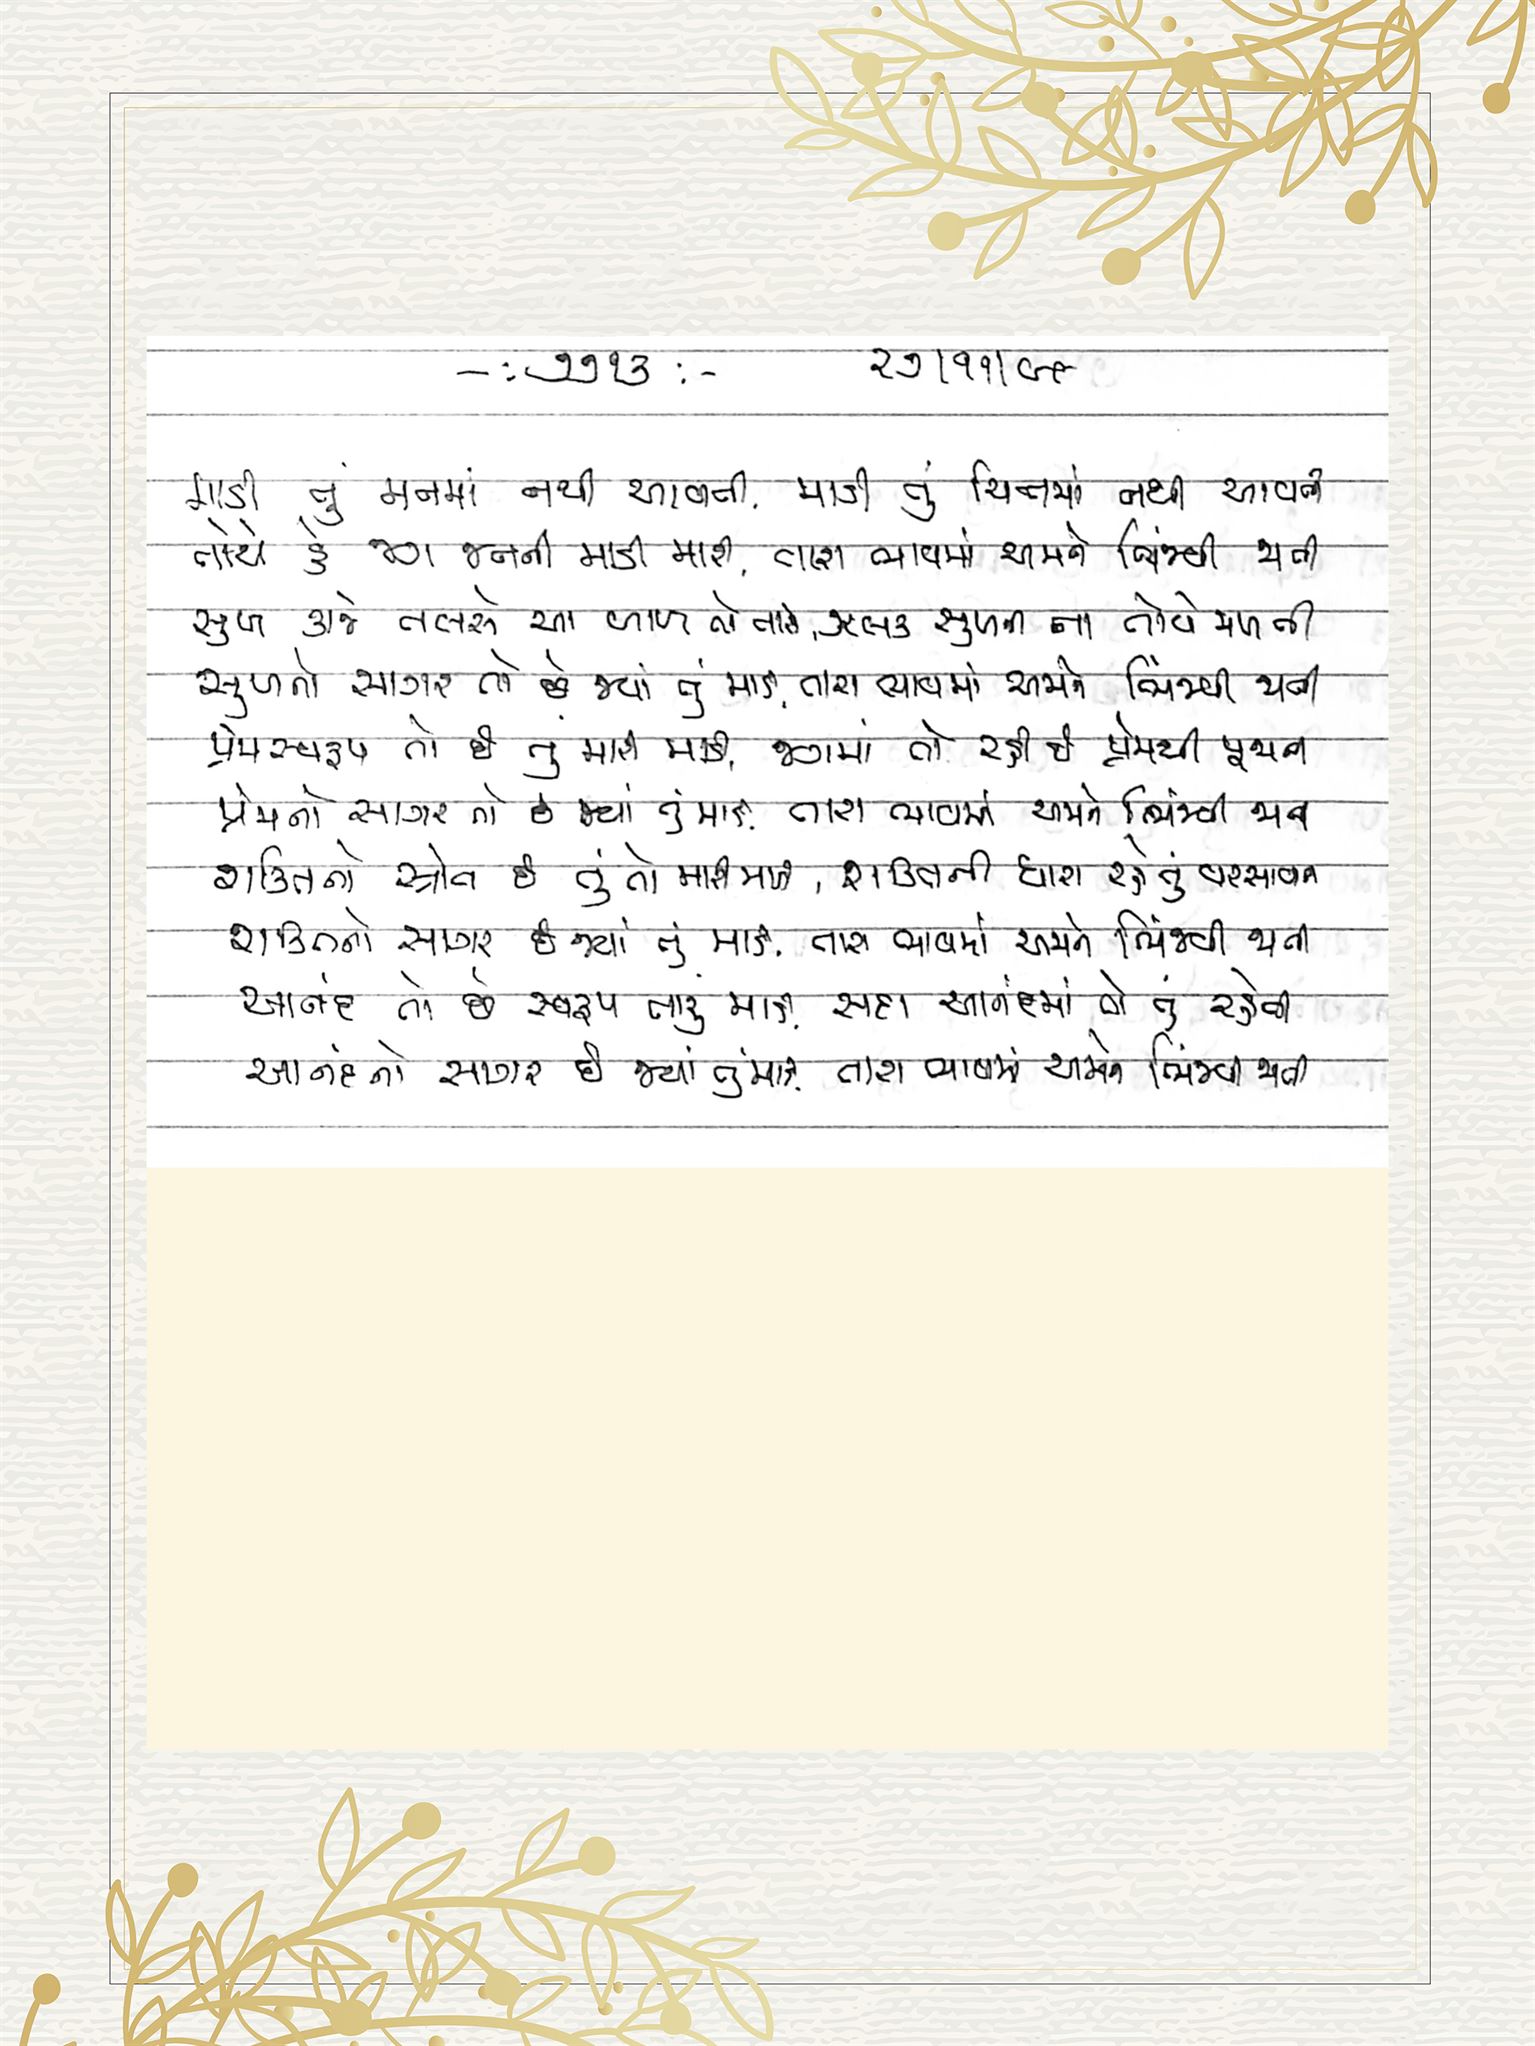 -: ૭૭૧૩ :- ૨૭/૧૧/૯૮
માડી તું મનમાં નથી આવતી, માડી તું ચિત્તમાં નથી આવતી
તોયે હે જગ જનની માડી મારી, તારા ભાવમાં અમને ભિંજવી જતી
સુખ કાજે તલસે આ બાળ તો તારો, ઝલક સુખની ના તોયે મળતી
સુખનો સાગર તો છે જ્યાં તું માડી, તારા ભાવમાં અમને ભિંજવી જતી
પ્રેમસ્વરૂપ તો છે તું મારી માડી, જગમાં તો રહી છે પ્રેમથી પૂજાતી
પ્રેમનો સાગર તો છે જ્યાં તું માડી, તારા ભાવમાં અમને ભિંજવી જતી
શક્તિનો સ્ત્રોત છે તું તો મારી માડી, શક્તિની ધારા રહે તું વરસાવતી
શક્તિનો સાગર છે જ્યાં તું માડી, તારા ભાવમાં અમને ભિંજવી જતી
આનંદ તો છે સ્વરૂપ તારું માડી, સદા આનંદમાં તો તું રહેતી
આનંદનો સાગર છે જ્યાં તું માડી, તારા ભાવમાં અમને ભિંજવી જતી